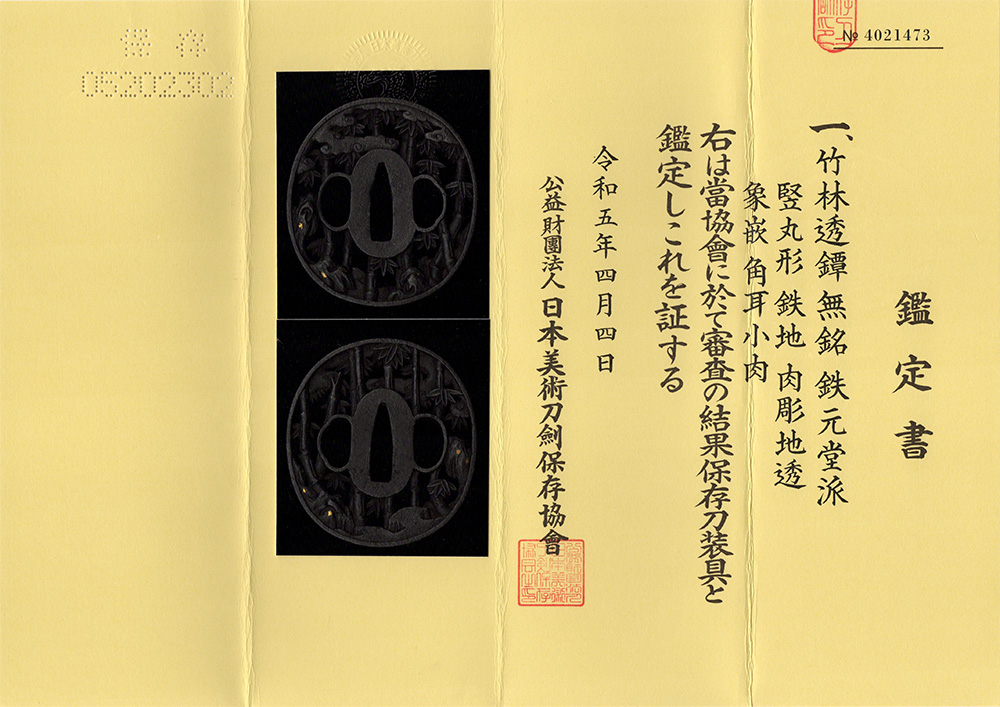 鑑定書
№ 4021473
一、竹林透鐔 無銘 鉄元堂派
竪丸形 鉄地 肉彫地透
象嵌 角耳小肉
右は當協會に於て審査の結果保存刀装具と
鑑定しこれを証する
令和五年四月四日
公益財團法人 日本美術刀劍保存協會
保存
05202302